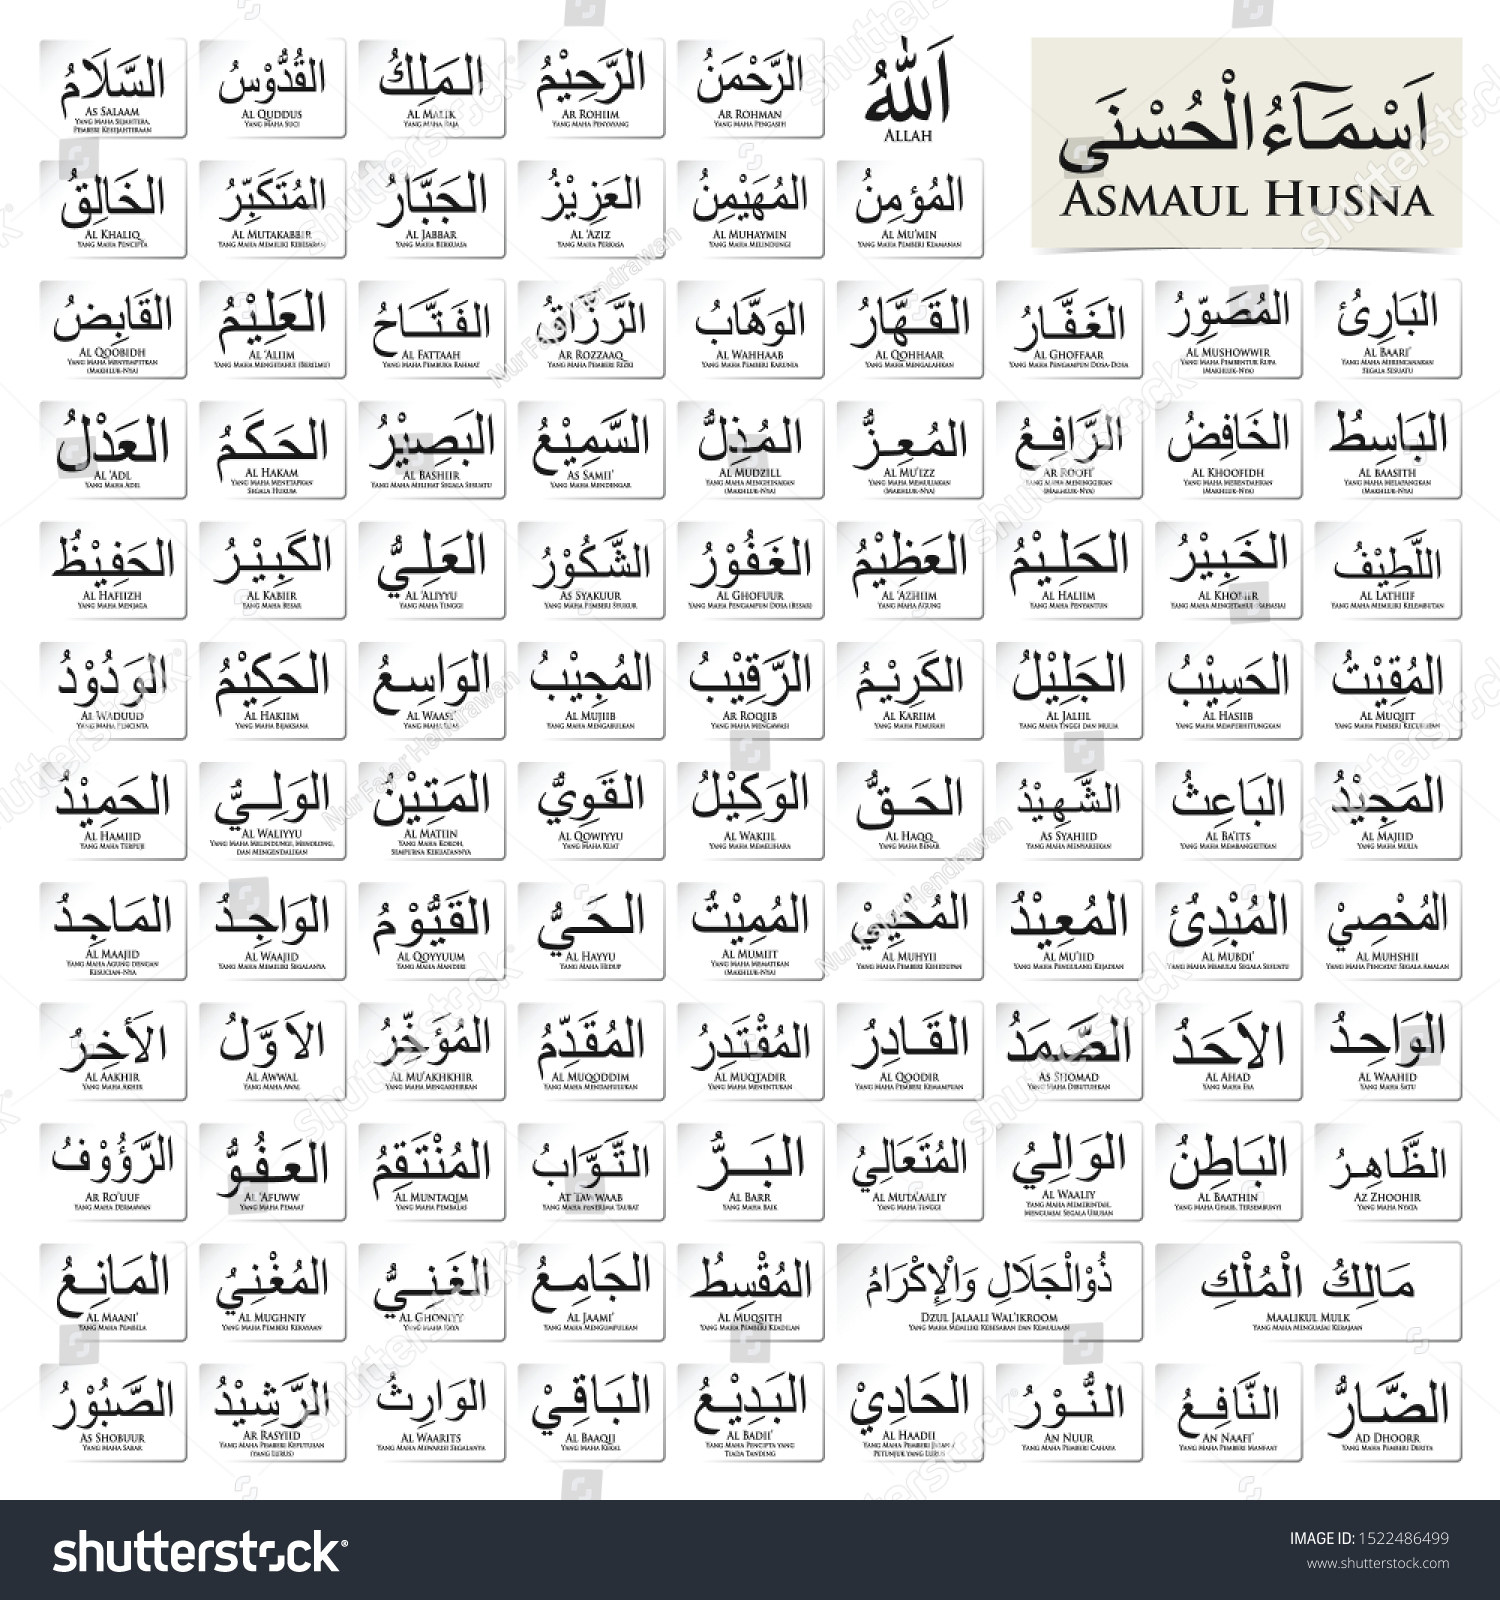 اَسْمَآءُالْحُسْنَى
ASMAUL HUSNA
اَللّٰهُ
ALLAH
الرَّحْمَنُ
AR ROHMAN
YANG MAHA PENGASIH
الرَّحِيْمُ
AR ROHIIM
YANG MAHA PENYAYANG
المَلِكُ
AL MALIK
YANG MAHA RAJA
القُدُّوْسُ
AL QUDDUS
YANG MAHA SUCI
السَّلَامُ
AS SALAAM
YANG MAHA SEJAHTERA,
PEMBERI KESEJAHTERAAN
المُؤمِنُ
AL MU'MIN
YANG MAHA PEMBERI KEAMANAN
المُهَيْمِنُ
AL MUHAYMIN
YANG MAHA MELINDUNGI
العَزِيْزُ
AL 'AZIZ
YANG MAHA PERKASA
الجَبَّارُ
AL JABBAR
YANG MAHA BERKUASA
المُتَكَبِّرُ
AL MUTAKABBIR
YANG MAHA MEMILIKI KEBESARAN
الخَالِقُ
AL KHALIQ
YANG MAHA PENCIPTA
البَارِئُ
AL BAARI'
YANG MAHA MERENCANAKAN
SEGALA SESUATU
المُصَوِّرُ
AL MUSHOWWIR
YANG MAHA PEMBENTUK RUPA
(MAKHLUK-NYA)
الغَفَّارُ
AL GHOFFAAR
YANG MAHA PENGAMPUN DOSA-DOSA
القَهَّارُ
AL QOHHAAR
YANG MAHA MENGALAHKAN
الوَهَّابُ
AL WAHHAAB
YANG MAHA PEMBERI KARUNIA
الرَّزَّاقُ
AR ROZZAAQ
YANG MAHA PEMBERI REZKI
الفَتَّاحُ
AL FATTAAH
YANG MAHA PEMBUKA RAHMAT
العَلِيْمُ
AL 'ALIIM
YANG MAHA MENGETAHUI (BERILMU)
القَابِضُ
AL QOOBIDH
YANG MAHA MENYEMPITKAN
(MAKHLUK-NYA)
البَاسِطُ
AL BAASITH
YANG MAHA MELAPANGKAN
(MAKHLUK-NYA)
الخَافِضُ
AL KHOOFIDH
YANG MAHA MERENDAHKAN
(MAKHLUK-NYA)
الرَّافِعُ
AR ROOFI'
YANG MAHA MENINGGIKAN
(MAKHLUK-NYA)
المُعِزُّ
AL MU'IZZ
YANG MAHA MEMULIAKAN
(MAKHLUK-NYA)
المُذِلُّ
AL MUDZILL
YANG MAHA MENGHINAKAN
(MAKHLUK-NYA)
السَّمِيْعُ
AS SAMII'
YANG MAHA MENDENGAR
البَصِيْرُ
AL BASHIIR
YANG MAHA MELIHAT SEGALA SESUATU
الحَكَمُ
AL HAKAM
YANG MAHA MENETAPKAN
SEGALA HUKUM
العَدْلُ
AL 'ADL
YANG MAHA ADIL
اللَّطِيْفُ
AL LATHIIF
YANG MAHA MEMILIKI KELEMBUTAN
الخَبِيْرُ
AL KHOBIIR
YANG MAHA MENGETAHUI RAHASIAI
الحَلِيْمُ
AL HALIIM
YANG MAHA PENYANTUN
العَظِيْمُ
AL 'AZHIIM
YANG MAHA AGUNG
الغَفُوْرُ
AL GHOFUUR
YANG MAHA PENGAMPUN DOSA (BESAR)
الشَّكُوْرُ
AS SYAKUUR
YANG MAHA PEMBERI SYUKUR
العَلِيُّ
AL 'ALIYYU
YANG MAHA TINGGI
الكَبِيْرُ
AL KABIIR
YANG MAHA BESAR
الحَفِيْظُ
AL HAFIIZH
YANG MAHA MENJAGA
المُقِيْتُ
AL MUQIIT
YANG MAHA PEMBERI KECUKUPAN
الحَسِيْبُ
AL HASIIB
YANG MAHA MEMPERHITUNGKAN
الجَلِيْلُ
AL JALIIL
YANG MAHA TINGGI DAN MULIA
الكَرِيْمُ
AL KARIIM
YANG MAHA PEMURAH
الرَّقِيْبُ
AR ROQIIB
YANG MAHA MENGAWASI
المُجِيْبُ
AL MUJIIB
YANG MAHA MENGABULKAN
الوَاسِعُ
AL WAASI'
YANG MAHA LUAS
الحَكِيْمُ
AL HAKIIM
YANG MAHA BIJAKSANA
الوَدُوْدُ
AL WADUUD
YANG MAHA PENCINTA
المَجِيْدُ
AL MAJIID
YANG MAHA MULIA
البَاعِثُ
AL BA'ITS
YANG MAHA MEMBANGKITKAN
الشَّهِيْدُ
AS SYAHIID
YANG MAHA MENYAKSIKAN
الحَقُّ
AL HAQQ
YANG MAHA BENAR
الوَكِيْلُ
AL WAKIIL
YANG MAHA MEMELIHARA
القَوِيُّ
AL QOWIYYU
YANG MAHA KUAT
المَتِيْنُ
AL MATIIN
YANG MAHA KOKOH,
SEMPURNA KEKUATANNYA
الوَلِيُّ
AL WALIYYU
YANG MAHA MELINDUNGI, MENOLONG,
DAN MENGENDALIKAN
الحَمِيْدُ
AL HAMIID
YANG MAHA TERPUJI
المُحْصِيْ
AL MUHSHII
YANG MAHA PENCATAT SEGALA AMALAN
المُبْدِئُ
AL MUBDI'
YANG MAHA MEMULAI SEGALA SESUATU
المُعِيْدُ
AL MU'IID
YANG MAHA PENGULANG KEJADIAN
المُحْيِيْ
AL MUHYII
YANG MAHA PEMBERI KEHIDUPAN
المُمِيْتُ
AL MUMIIT
YANG MAHA MEMATIKAN
(MAKHLUK-NYA)
الحَيُّ
AL HAYYU
YANG MAHA HIDUP
القَيُّوْمُ
AL QOYYUUM
YANG MAHA MANDIRI
الوَاجِدُ
AL WAAJID
YANG MAHA MEMILIKI SEGALANYA
المَاجِدُ
AL MAAJID
YANG MAHA AGUNG DENGAN
KESUCIAN-NYA
الوَاحِدُ
AL WAAHID
YANG MAHA SATU
الاَحَدُ
AL AHAD
YANG MAHA ESA
الصَّمَدُ
AS SHOMAD
YANG MAHA DIBUTUHKAN
القَادِرُ
AL QOODIR
YANG MAHA PEMBERI KEMAMPUAN
المُقْتَدِرُ
AL MUQTADIR
YANG MAHA MENENTUKAN
المُقَدِّمُ
AL MUQODDIM
YANG MAHA MENDAHULUKAN
المُؤَخِّرُ
AL MU'AKHKHIR
YANG MAHA MENGAKHIRKAN
الاَوَّلُ
AL AWWAL
YANG MAHA AWAL
الاَخِرُ
AL AAKHIR
YANG MAHA AKHIR
الظَّاهِرُ
AZ ZHOOHIR
YANG MAHA NYATA
البَاطِنُ
AL BAATHIN
YANG MAHA GHAIB, TERSEMBUNYI
الوَالِيُ
AL WAALIY
YANG MAHA MEMERINTAH,
MENGUASAI SEGALA URUSAN
المُتَعَالِيُ
AL MUTA'AALIY
YANG MAHA TINGGI
البَرُّ
AL BARR
YANG MAHA BAIK
التَّوَّابُ
AT TAWWAAB
YANG MAHA PENERIMA TAUBAT
المُنْتَقِمُ
AL MUNTAQIM
YANG MAHA PEMBALAS
العَفُوُّ
AL 'AFUWW
YANG MAHA PEMAAF
الرَّؤُوْفُ
AR RO'UUF
YANG MAHA DERMAWAN
مَالِكُ الْمُلْكِ
MAALIKUL MULK
YANG MAHA MENGUASAI KERAJAAN
ذُوْالْجَلَالِ وَالْاِكْرَامُ
DZUL JALAALI WAL'IKROOM
YANG MAHA MEMILIKI KEBESARAN DAN KEMULIAAN
المُقْسِطُ
AL MUQSITH
YANG MAHA PEMBERI KEADILAN
الجَامِعُ
AL JAAMI'
YANG MAHA MENGUMPULKAN
الغَنِيُّ
AL GHONIYY
YANG MAHA KAYA
المُغْنِيُ
AL MUGHNIY
YANG MAHA PEMBERI KEKAYAAN
المَانِعُ
AL MAANI'
YANG MAHA PEMBELA
الضَّارُّ
AD DHOORR
YANG MAHA PEMBERI DERITA
النَّافِعُ
AN NAAFI'
YANG MAHA PEMBERI MANFAAT
النُّوْرُ
AN NUUR
YANG MAHA PEMBERI CAHAYA
الحَادِيْ
AL HAADII
YANG MAHA PEMBERI JALAN /
PETUNJUK YANG LURUS
البَدِيْعُ
AL BADII'
YANG MAHA PENCIPTA YANG
TIADA TANDING
البَاقِيْ
AL BAAQIJ
YANG MAHA KEKAL
الوَارِثُ
AL WAARITS
YANG MAHA MEWARISI SEGALANYA
الرَّشِيْدُ
AR RASYIID
YANG MAHA PEMBERI KEPUTUSAN
(YANG LURUS)
الصَّبُوْرُ
AS SHOBUUR
YANG MAHA SABAR
shutterstock
IMAGE ID: 1522486499
www.shutterstock.com